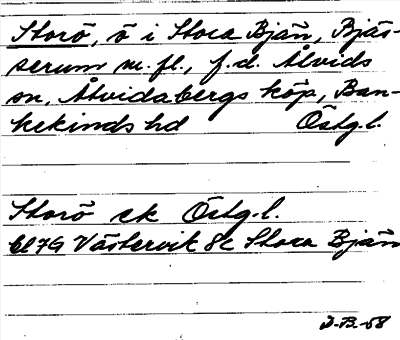 Storö, ö i Stora Bjän, Bjäs-
serum m.fl., f.d. Åtvids
sn, Åtvidabergs köp, Ban-
kekinds hd Östg.l.
Storö ek Östg.l.
bl 7G Västervik 8c Stora Bjän
D.B.-58